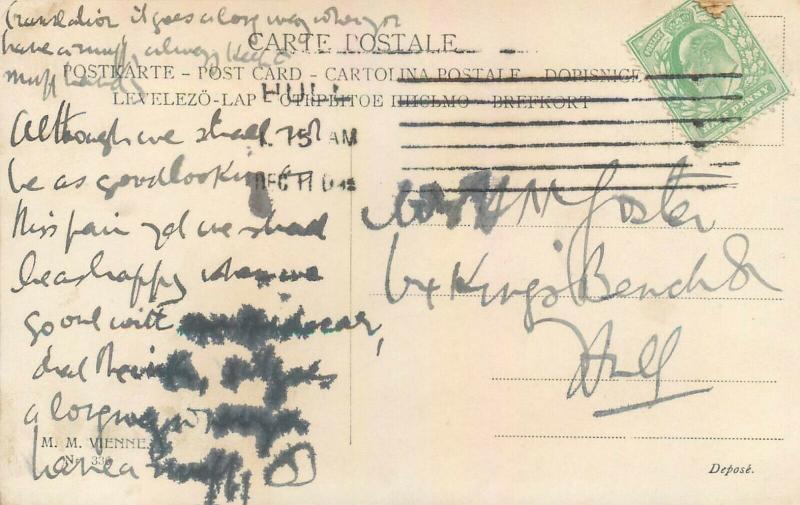 (translation it goes a long way when yor
have a muff always keep a
muff handy)
CARTE POSTALE
POSTKARTE – POST CARD – CARTOLINA POSTALE – DOPISNICE
LEVELEZÖ-LAP – ОТКРЫТОЕ ПИСЬМО – BREFKORT
HULL
15 AM
DEC 11 0
HALF PENNY
Although we shall not
be as goodlooking as
this pair yet we shall
be as happy when we
go out with
dear,
and then, it goes
a long way when yor
have a muff,
M. M. VIENNE
Nr. 33
M Foster
64 Kings Bench St
Hull
Deposé.